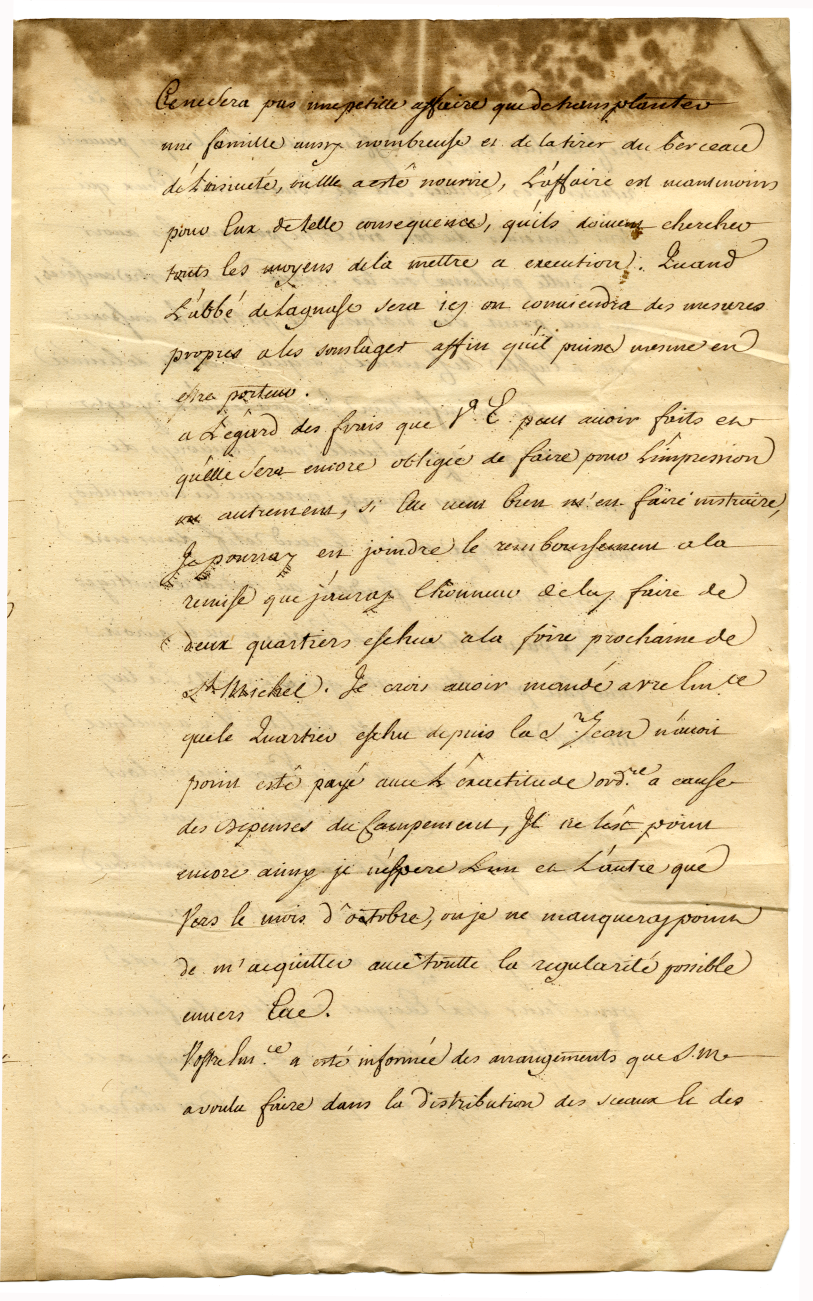 Ce ne sera pas une petitte affaire que de transplanter
une famille aussy nombreuse et de la tirer du berceau
de l'oisiveté, ou elle a esté nourrie, L'affaire est neantmoins
pour Eux de telle consequence, qu'ils doivent chercher
touts les moyens de la mettre a execution. Quand
L'abbé de Lagnasc sera icy on conviendra des mesures
propres a les soulager affin qu'il puisse mesme en
estre porteur.
a L'égard des frais que V.ª E. peut avoir faits et
qu'elle sera encore obligée de faire pour L'impression
ou autrement, si Elle veut bien m'en faire instruire,
Je pourray en joindre le remboursement a la
remise que j'auray l'honneur de luy faire de
deux quartiers eschus a la foire prochaine de
St. Michel. Je crois avoir mandé a vre Em.ce
que le Quartier eschu depuis la St. Jean n'avoit
point esté payé avec L'exactitude ord.re a cause
des depenses du Campement, Il ne l'est point
encore ainsy je n'espere L'un et L'autre que
Vers le mois d'octobre, ou je ne manqueray point
de m'acquitter avec toutte la regularité possible
envers Elle.
Vostre Em.ce a esté informée des arrangements que S. M.
a voulu faire dans la distribution des sceaux le des